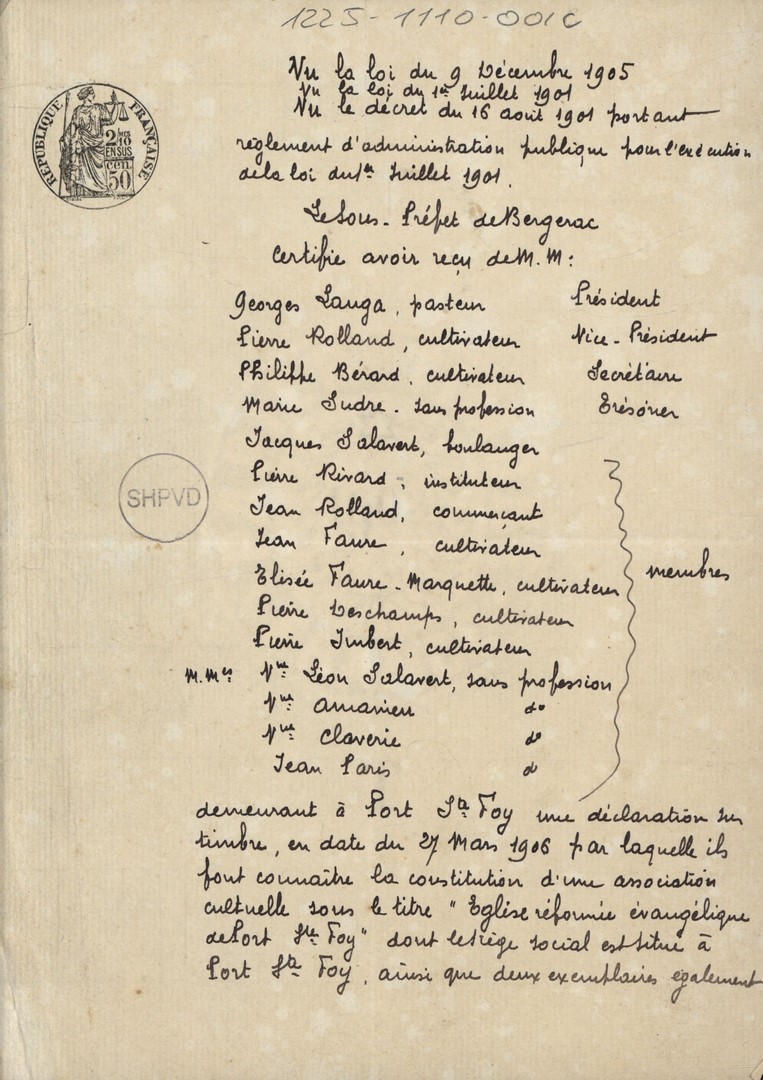 1225-1110-001C
Vu la loi du 9 Décembre 1905
Vu la loi du 1er Juillet 1901
Vu le décret du 16 août 1901 portant
règlement d'administration publique pour l'exécution
de la loi du 1er Juillet 1901.
RÉPUBLIQUE FRANÇAISE
2/10mes
EN SUS
50 cen.
Le Sous-Préfet de Bergerac
certifie avoir reçu de M.M:
Georges Lauga, pasteur Président
Pierre Rolland, cultivateur Vice-Président
Philippe Bérard, cultivateur Secrétaire
Marie Sudre - sans profession Trésorier
Jacques Salavert, boulanger
Pierre Rivard, instituteur
SHPVD
Jean Rolland, commerçant
Jean Faure, cultivateur
Elisée Faure-Marquette, cultivateur
membres
Pierre Deschamps, cultivateur
Pierre Imbert, cultivateur
M.Mes Vve Léon Salavert, sans profession
Vve Amanieu do
Vve Claverie do
Jean Paris do
demeurant à Port Ste Foy une déclaration sur
timbre, en date du 27 Mars 1906 par laquelle ils
font connaître la constitution d'une association
cultuelle sous le titre "Eglise réformée évangélique
de Port Ste Foy" dont le siège social est situé à
Port Ste Foy, ainsi que deux exemplaires également